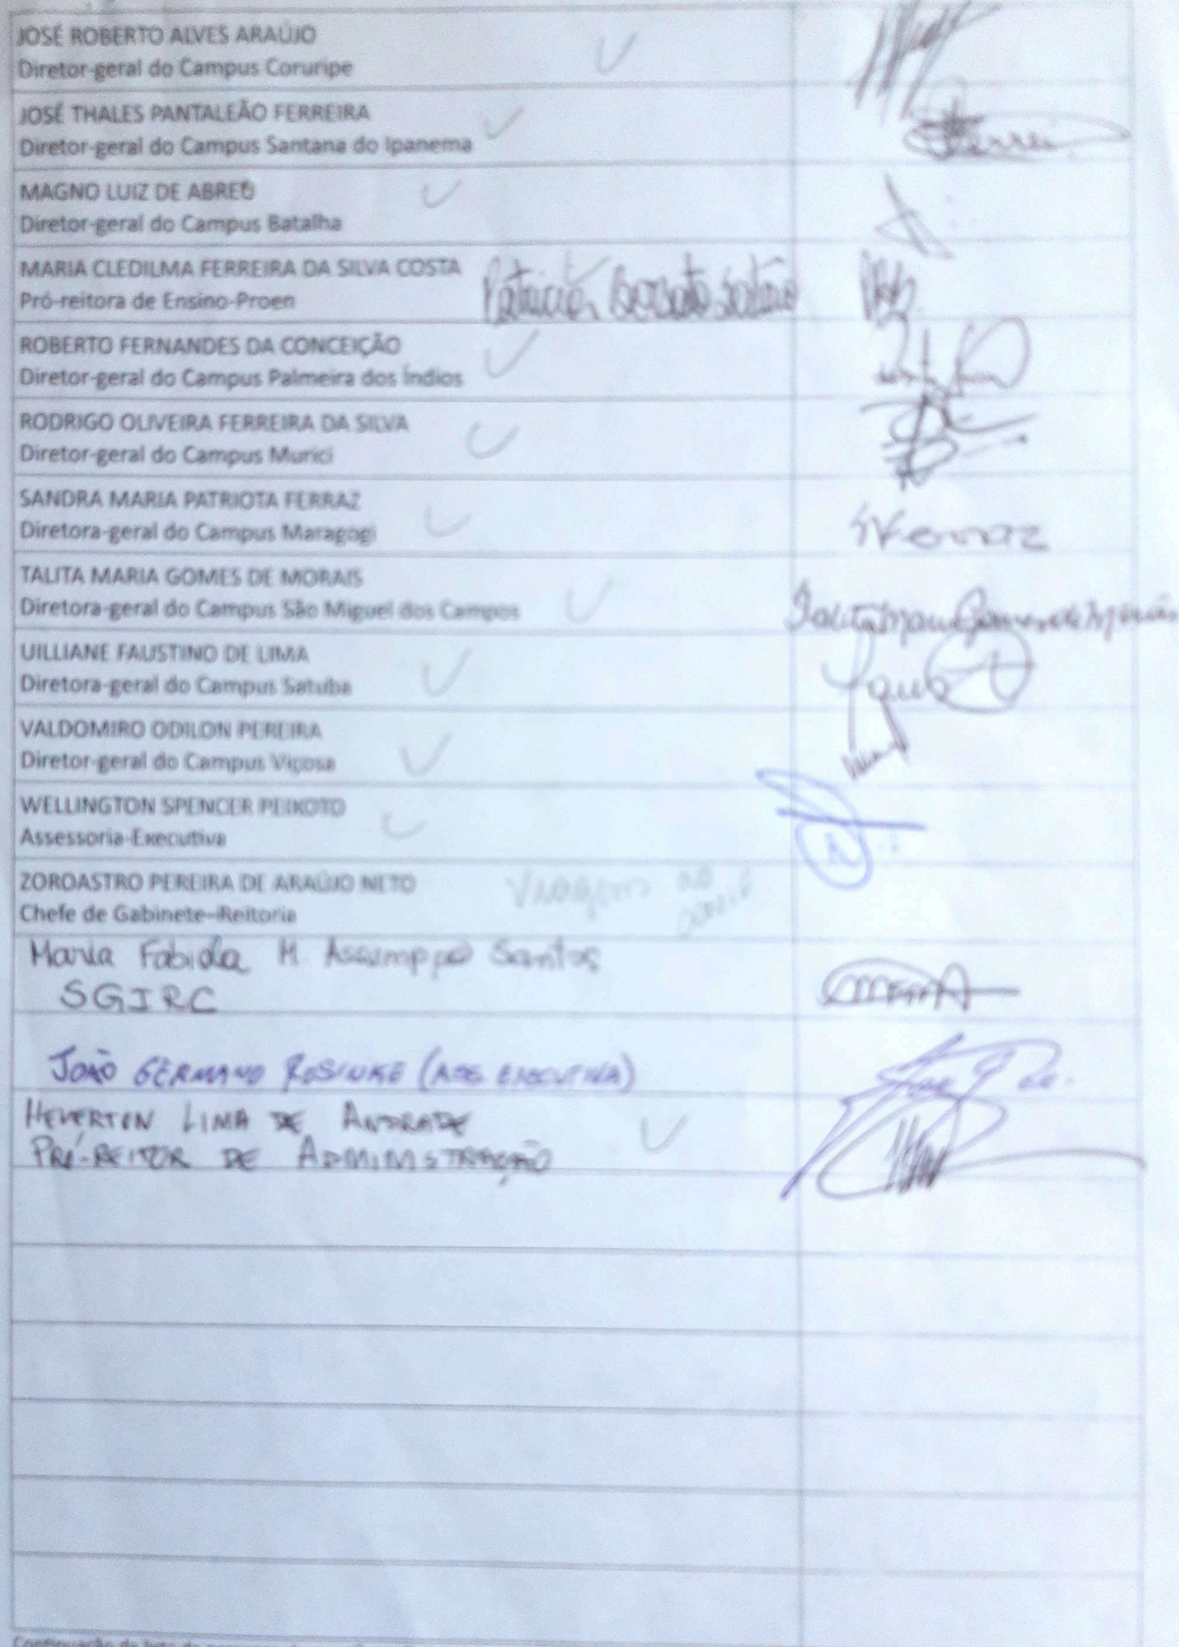 JOSÉ ROBERTO ALVES ARAÚJO
Diretor-geral do Campus Coruripe
JOSÉ THALES PANTALEÃO FERREIRA
Diretor-geral do Campus Santana do Ipanema
MAGNO LUIZ DE ABREU
Diretor-geral do Campus Batalha
MARIA CLEDILMA FERREIRA DA SILVA COSTA
Pró-reitora de Ensino-Proen
Patrícia
ROBERTO FERNANDES DA CONCEIÇÃO
Diretor-geral do Campus Palmeira dos Índios
RODRIGO OLIVEIRA FERREIRA DA SILVA
Diretor-geral do Campus Murici
SANDRA MARIA PATRIOTA FERRAZ
Diretora-geral do Campus Maragogi
TALITA MARIA GOMES DE MORAIS
Diretora-geral do Campus São Miguel dos Campos
Talita Maria Gomes de Morais
UILLIANE FAUSTINO DE LIMA
Diretora-geral do Campus Satuba
VALDOMIRO ODILON PEREIRA
Diretor-geral do Campus Viçosa
WELLINGTON SPENCER PEIXOTO
Assessoria-Executiva
ZOROASTRO PEREIRA DE ARAÚJO NETO
Chefe de Gabinete–Reitoria
Maria Fabíola M. Assumpção Santos
SGIRC
JOÃO GERMANO (ASS. EXECUTIVA)
HEVERTON LIMA DE ANDRADE
PRÓ-REITOR DE ADMINISTRAÇÃO